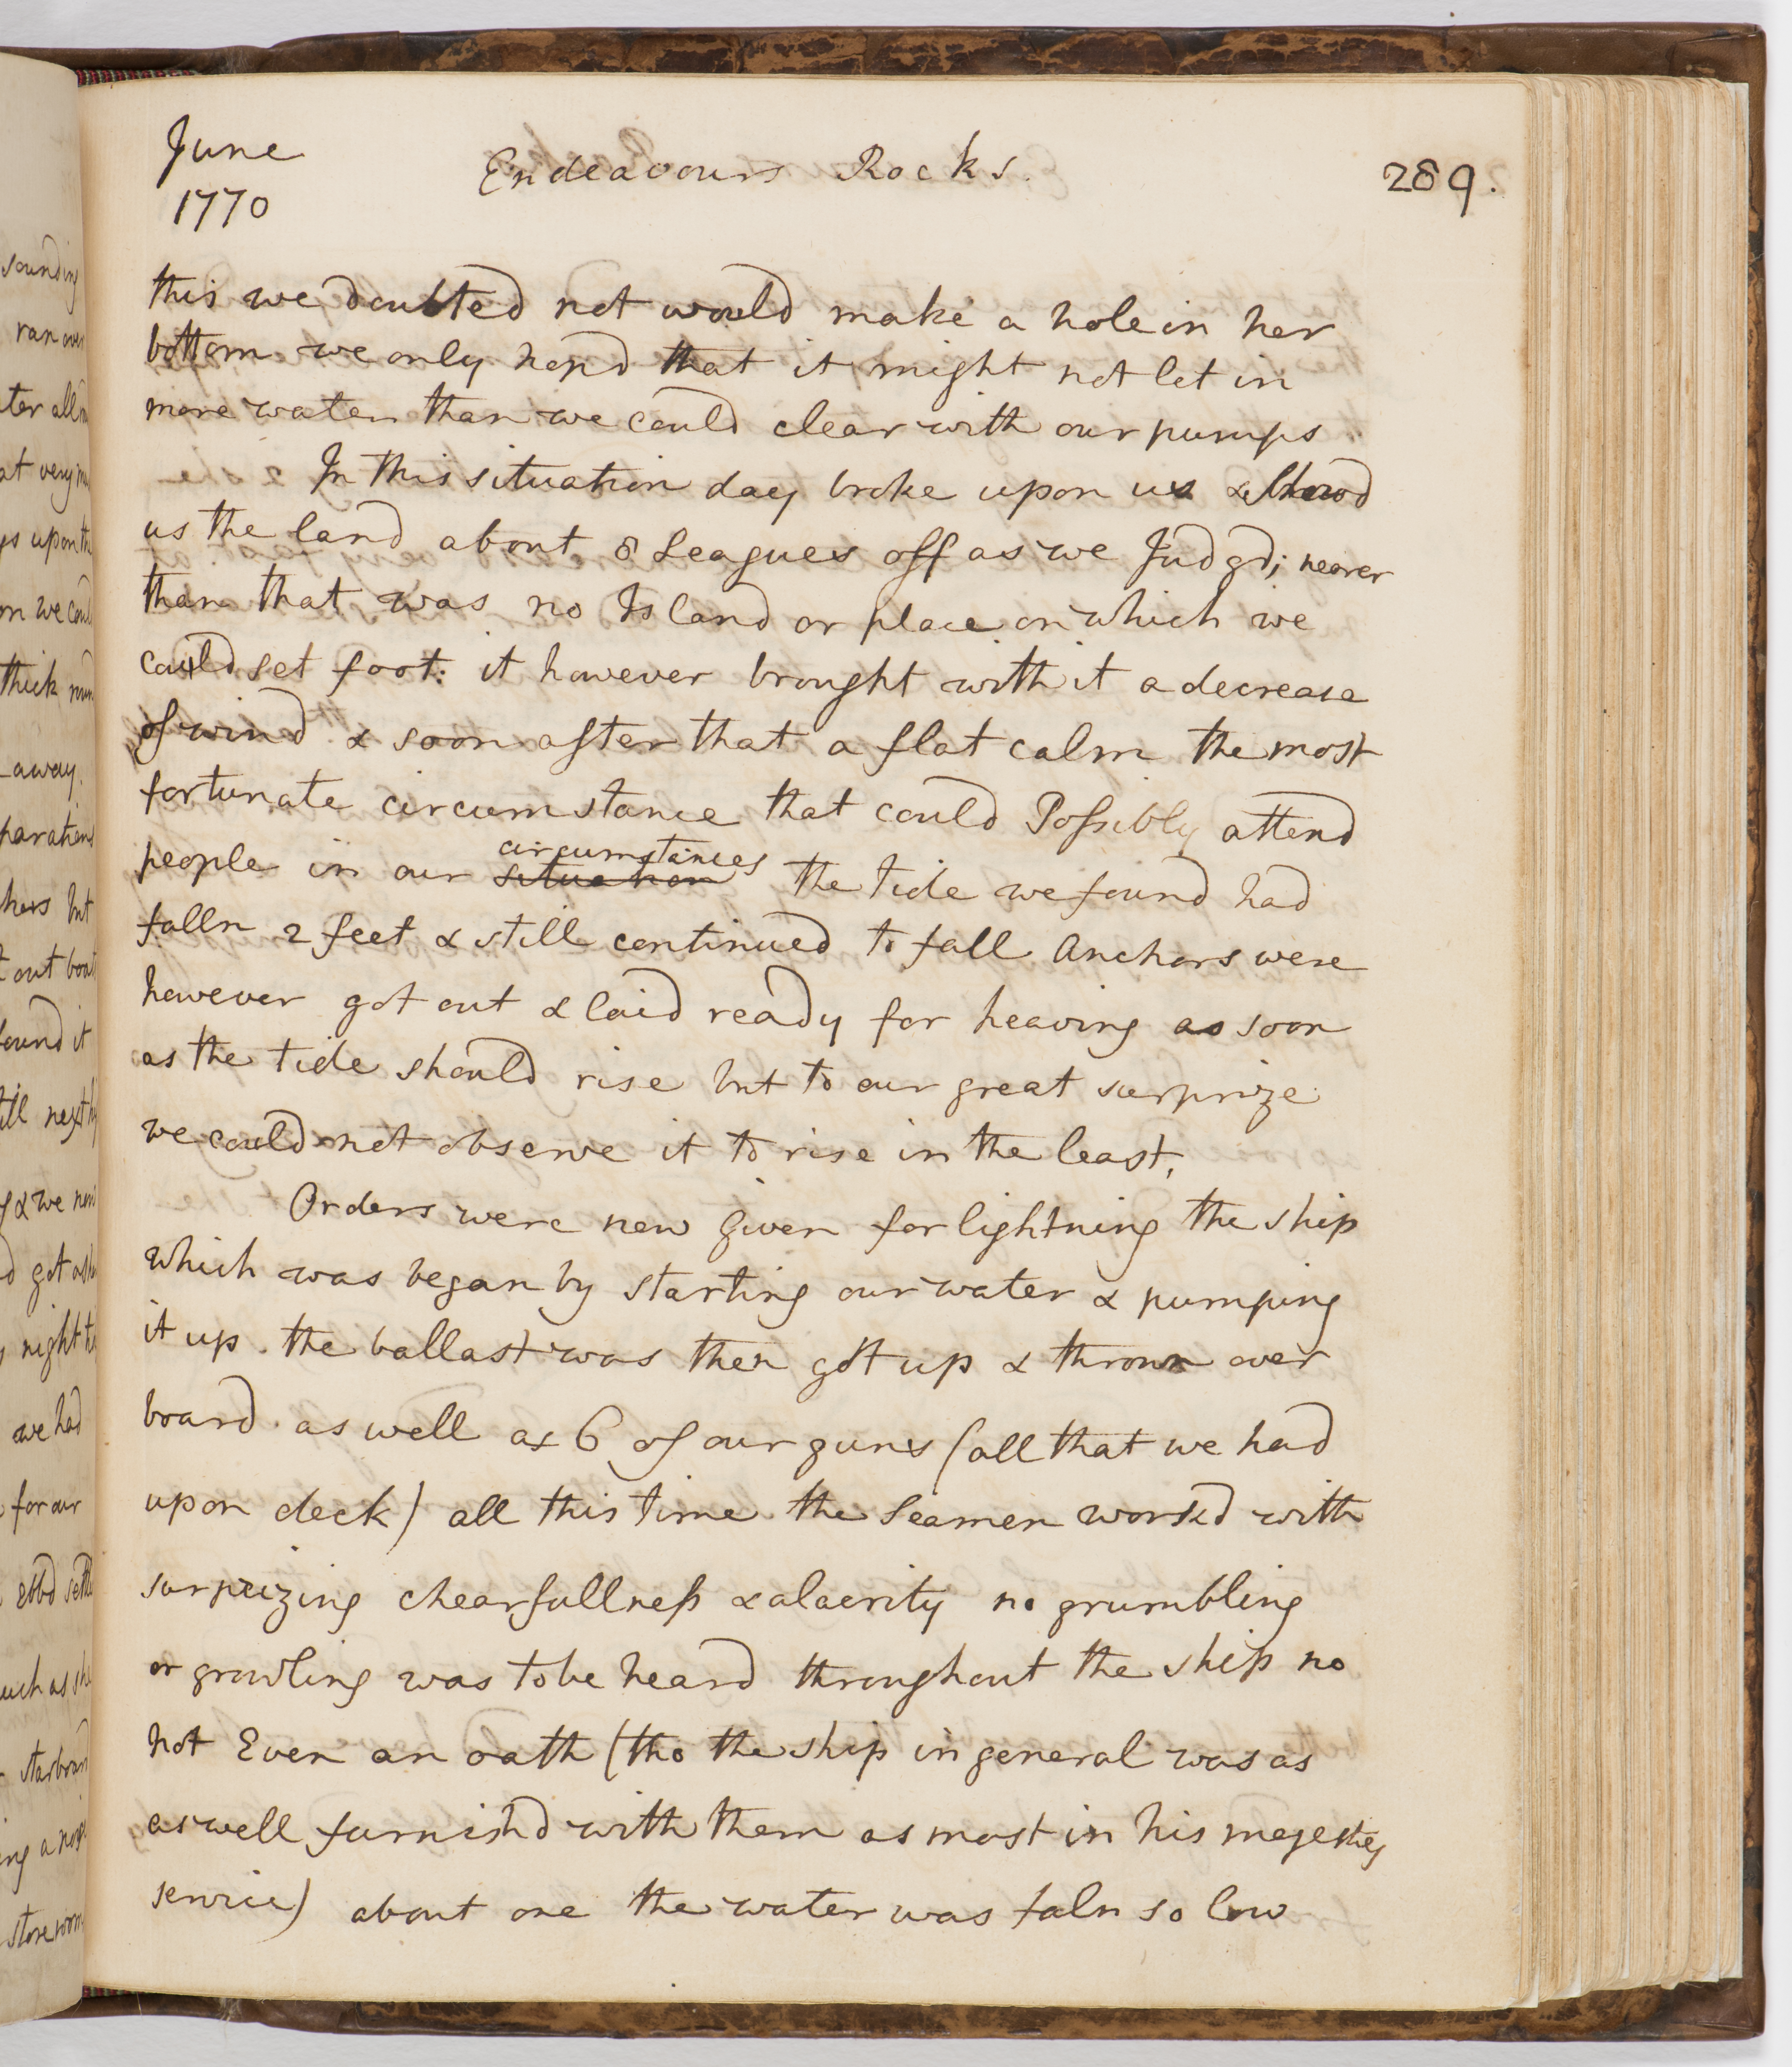 June
1770
Endeavours Rocks.
289.
this we doubted not would make a hole in her
bottom we only hopd that it might not let in
more water than we could clear with our pumps
In this situation day broke upon us & showd
us the land about 8 Leagues off as we Judgd; nearer
than that was no Island or place on which we
could set foot: it however brought with it a decrease
of wind & soon after that a flat calm the most
fortunate circumstance that could Possibly attend
circumstances
people in our situation the tide we found had
falln 2 feet & still continued to fall Anchors were
however got out & laid ready for heaving as soon
as the tide should rise but to our great surprize
we could not observe it to rise in the least,
Orders were now given for lightning the ship
which was began by starting our water & pumping
it up. the ballast was then got up & thrown over
board. as well as 6 of our guns (all that we had
upon deck) all this time the Seamen workd with
surprizing chearfullness & alacrity no grumbling
or growling was to be heard throughout the ship no
not Even an oath (tho the ship in general was as
as well furnishd with them as most in his majesties
service) about one the water was faln so low
sounding
ran over
at very
upon the
we could
thick
away.
out boat
found it
& we
we had
for our
ebbd
starboard